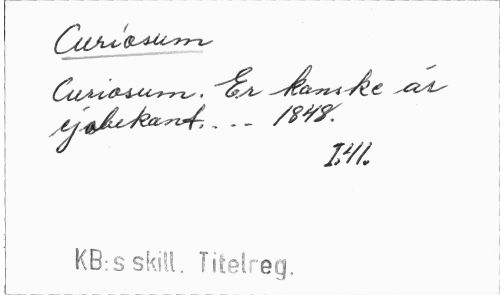 Curiosum
Curiosum. Er kanske är
ej obekant. ... 1848.
I:41.
KB:s skill. Titelreg.